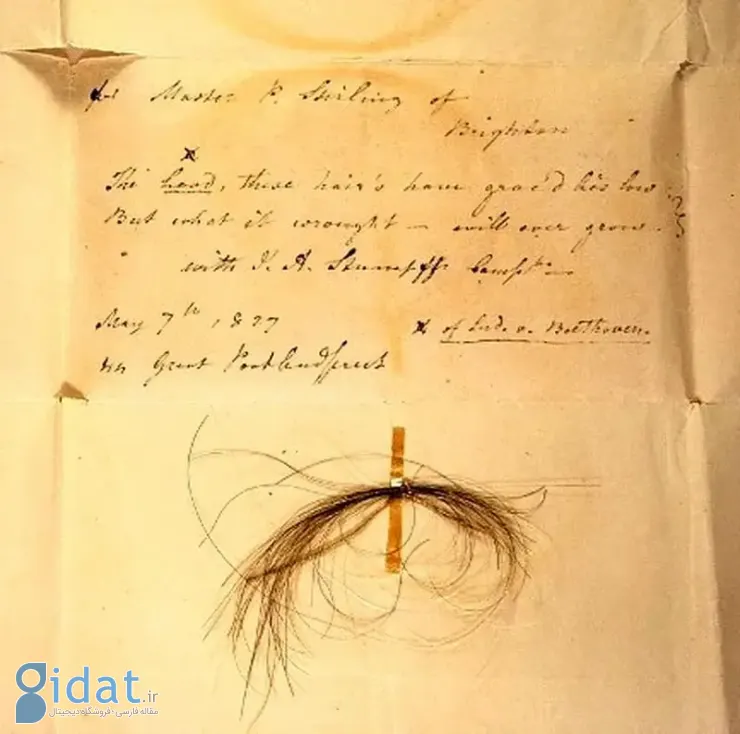 for Master P. Stirling of
Brighton
x
The head, these hair's have grac'd lies low
But what it wrought – will ever grow.
with J. A. Stumpff's Compts –
May 7th, 1827
x of Lud. v. Beethoven.
44 Great Portlandstreet
gidat.ir
مقاله فارسی ؛ فروشگاه دیجیتال